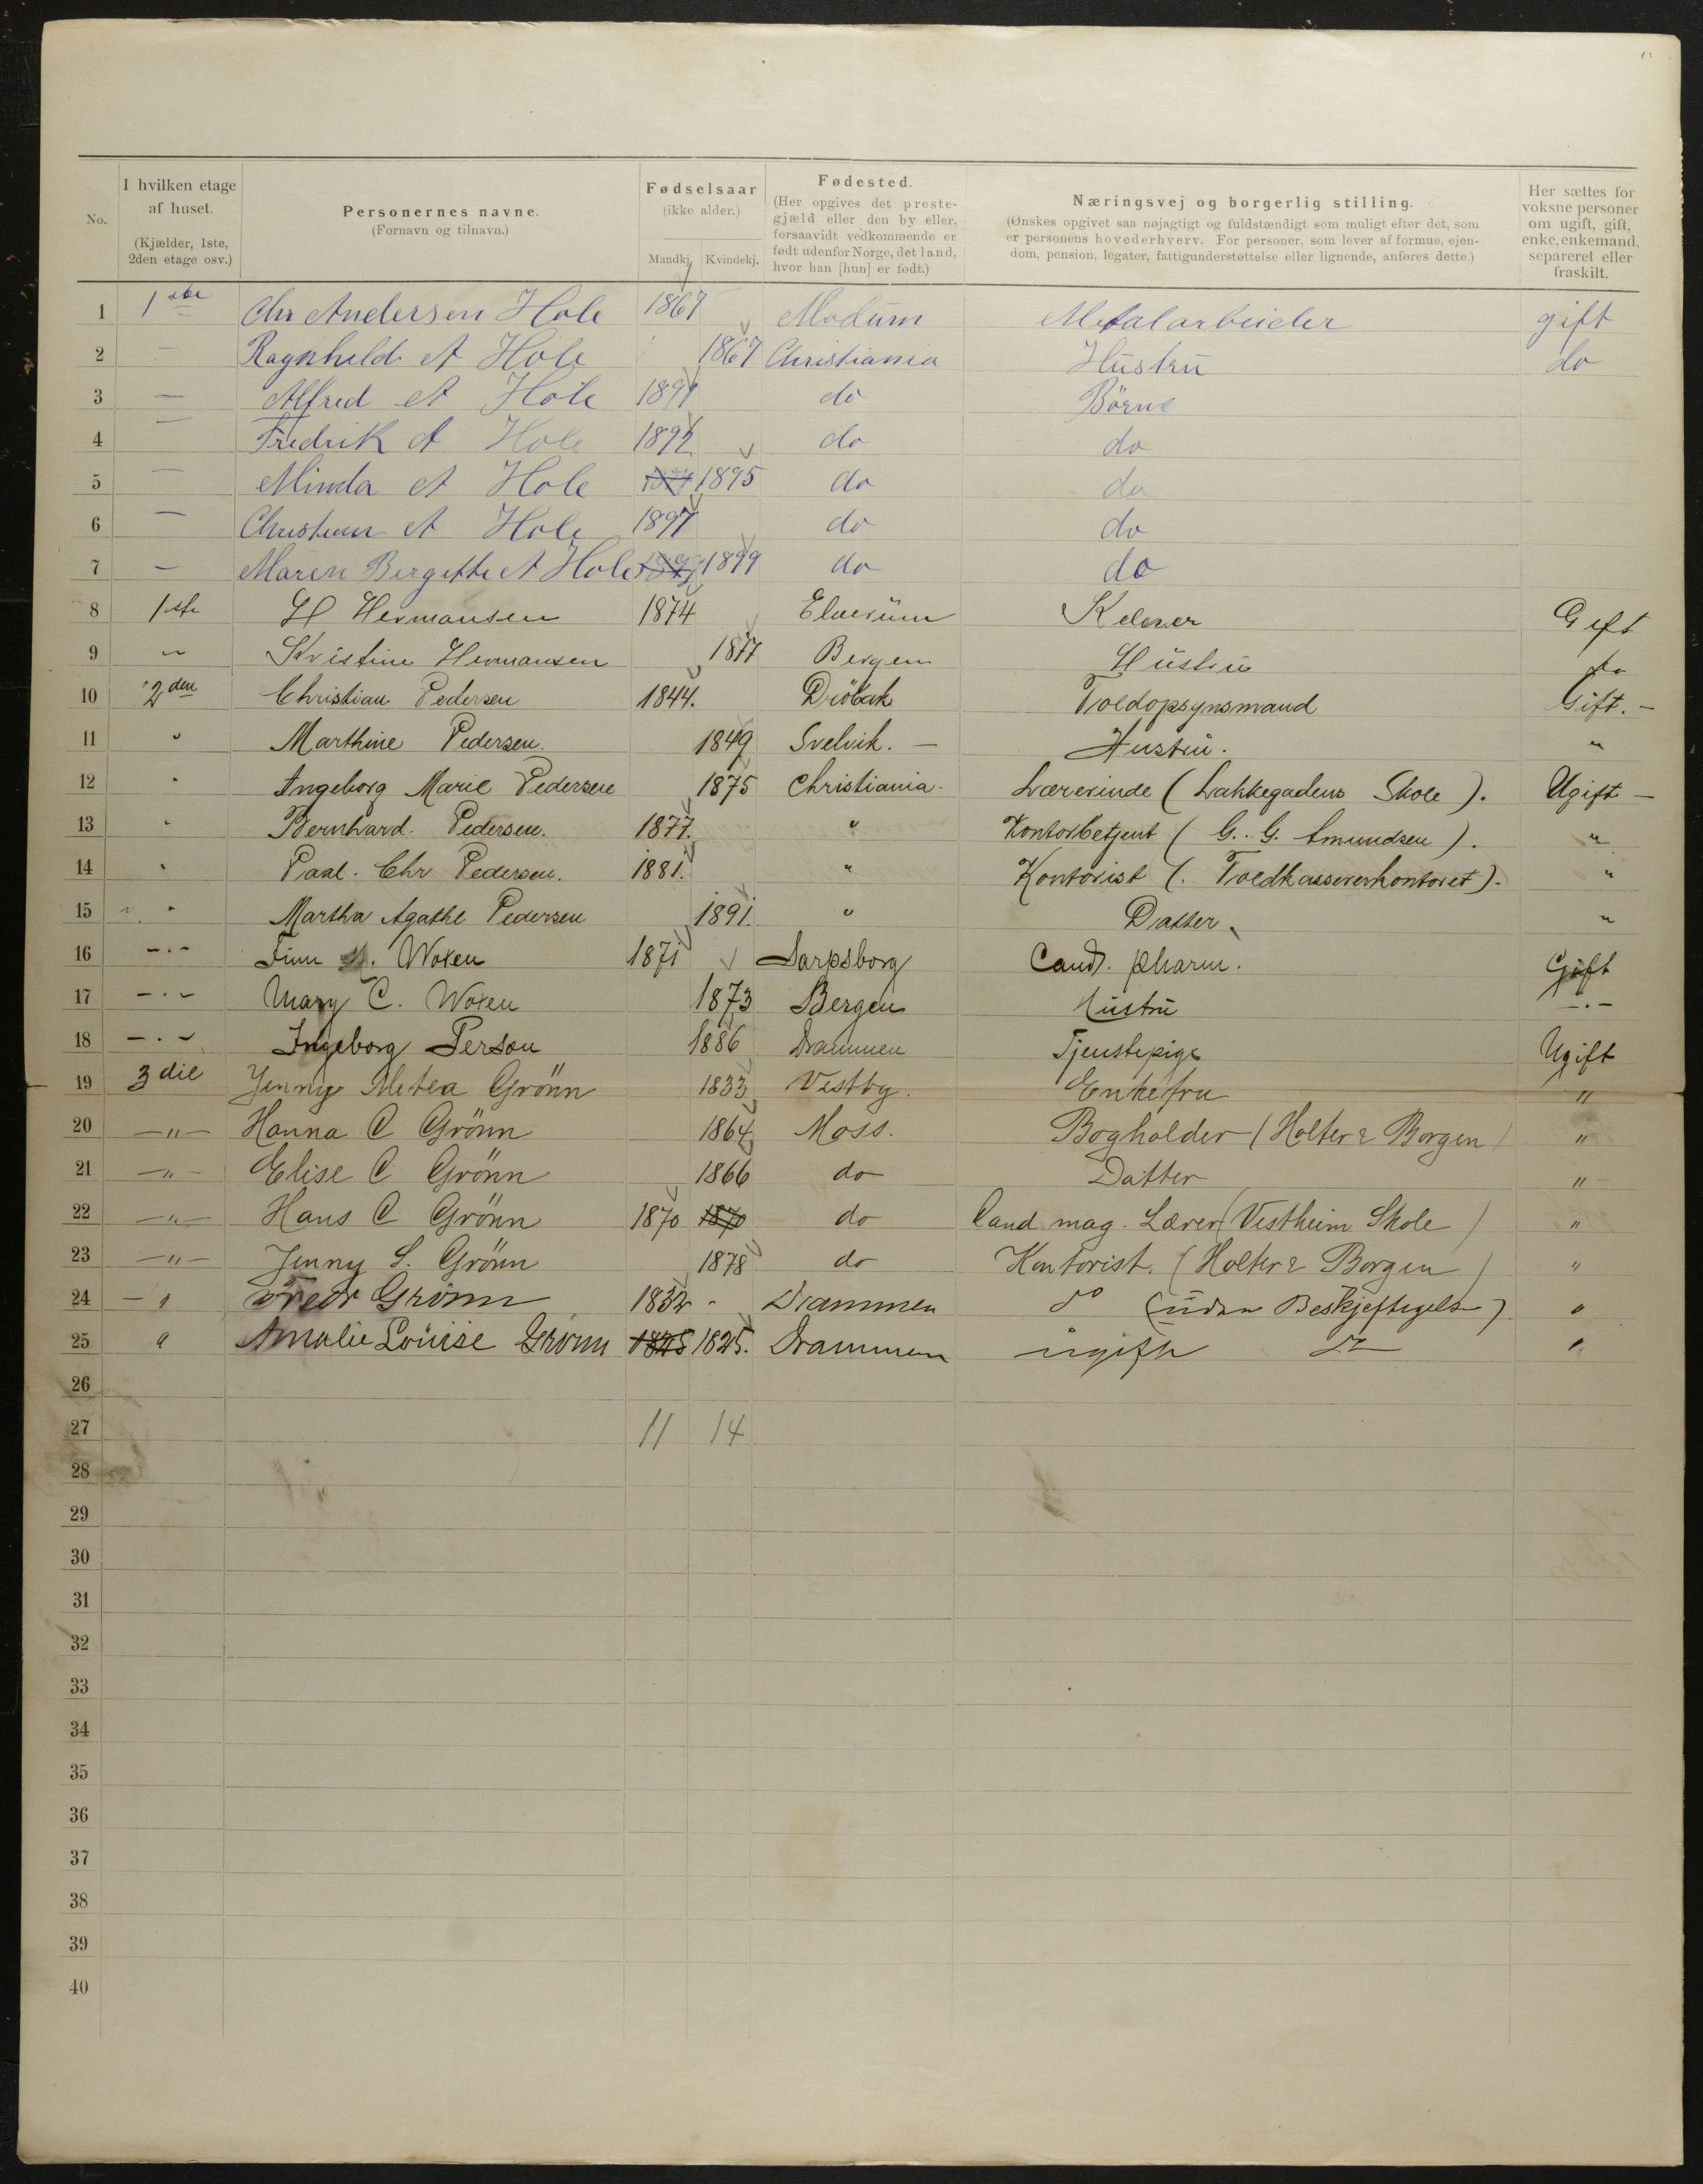 No.
I hvilken etage af huset.
(Kjælder, 1ste, 2den etage osv.)
Personernes navne.
(Fornavn og tilnavn.)
Fødselsaar
(ikke alder.)
Mandkj. Kvindekj.
Fødested.
(Her opgives det preste-
gjæld eller den by eller,
forsaavidt vedkommende er
født udenfor Norge, det land,
hvor han [hun] er født.)
Næringsvej og borgerlig stilling.
(Ønskes opgivet saa nøjagtigt og fuldstændigt som muligt efter det, som
er personens hovederhverv. For personer, som lever af formue, ejen-
dom, pension, legater, fattigunderstøttelse eller lignende, anføres dette.)
Her sættes for
voksne personer
om ugift, gift,
enke, enkemand,
separeret eller
fraskilt.
1 1ste Chr Andersen Hole 1867 Modum Metalarbeider gift
2 — Ragnhild A Hole 1867 Christiania Hustru do
3 — Alfred A Hole 1891 do Börne
4 — Fredrik A Hole 1892 do do
5 — Minda A Hole 1895 do do
6 — Christian A Hole 1897 do do
7 — Maren Bergitte A Hole 1899 do do
8 1ste H Hermansen 1874 Elverum Kelner Gift
9 " Kristine Hermansen 1877 Bergen Hustru do
10 2den Christian Pedersen 1844. Dröbak Toldopsynsmand Gift. —
11 " Marthine Pedersen. 1849 Svelvik. — Hustru. "
12 " Ingeborg Marie Pedersen 1875 Christiania - Lærerinde (Lakkegadens Skole). Ugift —
13 " Bernhard. Pedersen. 1877. " Kontorbetjent (G. G. Amundsen). "
14 " Paal. Chr Pedersen. 1881. " Kontorist (. Toldkassererkontoret). "
15 " Martha Agathe Pedersen 1891. " Datter. "
16 -"- Finn Woxen 1871 Sarpsborg Cand. pharm. Gift
17 -"- Mary C. Woxen 1873 Bergen Hustru -"-
18 -"- Ingeborg Person 1886 Drammen Tjenstepige Ugift
19 3die Jenny Metea Grönn 1833 Vestby. Enkefru "
20 —"— Hanna C Grönn 1864 Moss. Bogholder (Holter & Borgen) "
21 —"— Elise C Grönn 1866 do Datter "
22 —"— Hans C Grönn 1870 1870 do Cand mag. Lærer (Vestheim Skole) "
23 —"— Jenny S. Grönn 1878 do Kontorist. (Holter & Borgen) "
24 — " Fredr Grönn 1832 - Drammen do (uden Beskjeftigelse) "
25 " Amalie Louise Grönn 1825 1825. Drammen ugift do "
26
27 11 14
28
29
30
31
32
33
34
35
36
37
38
39
40